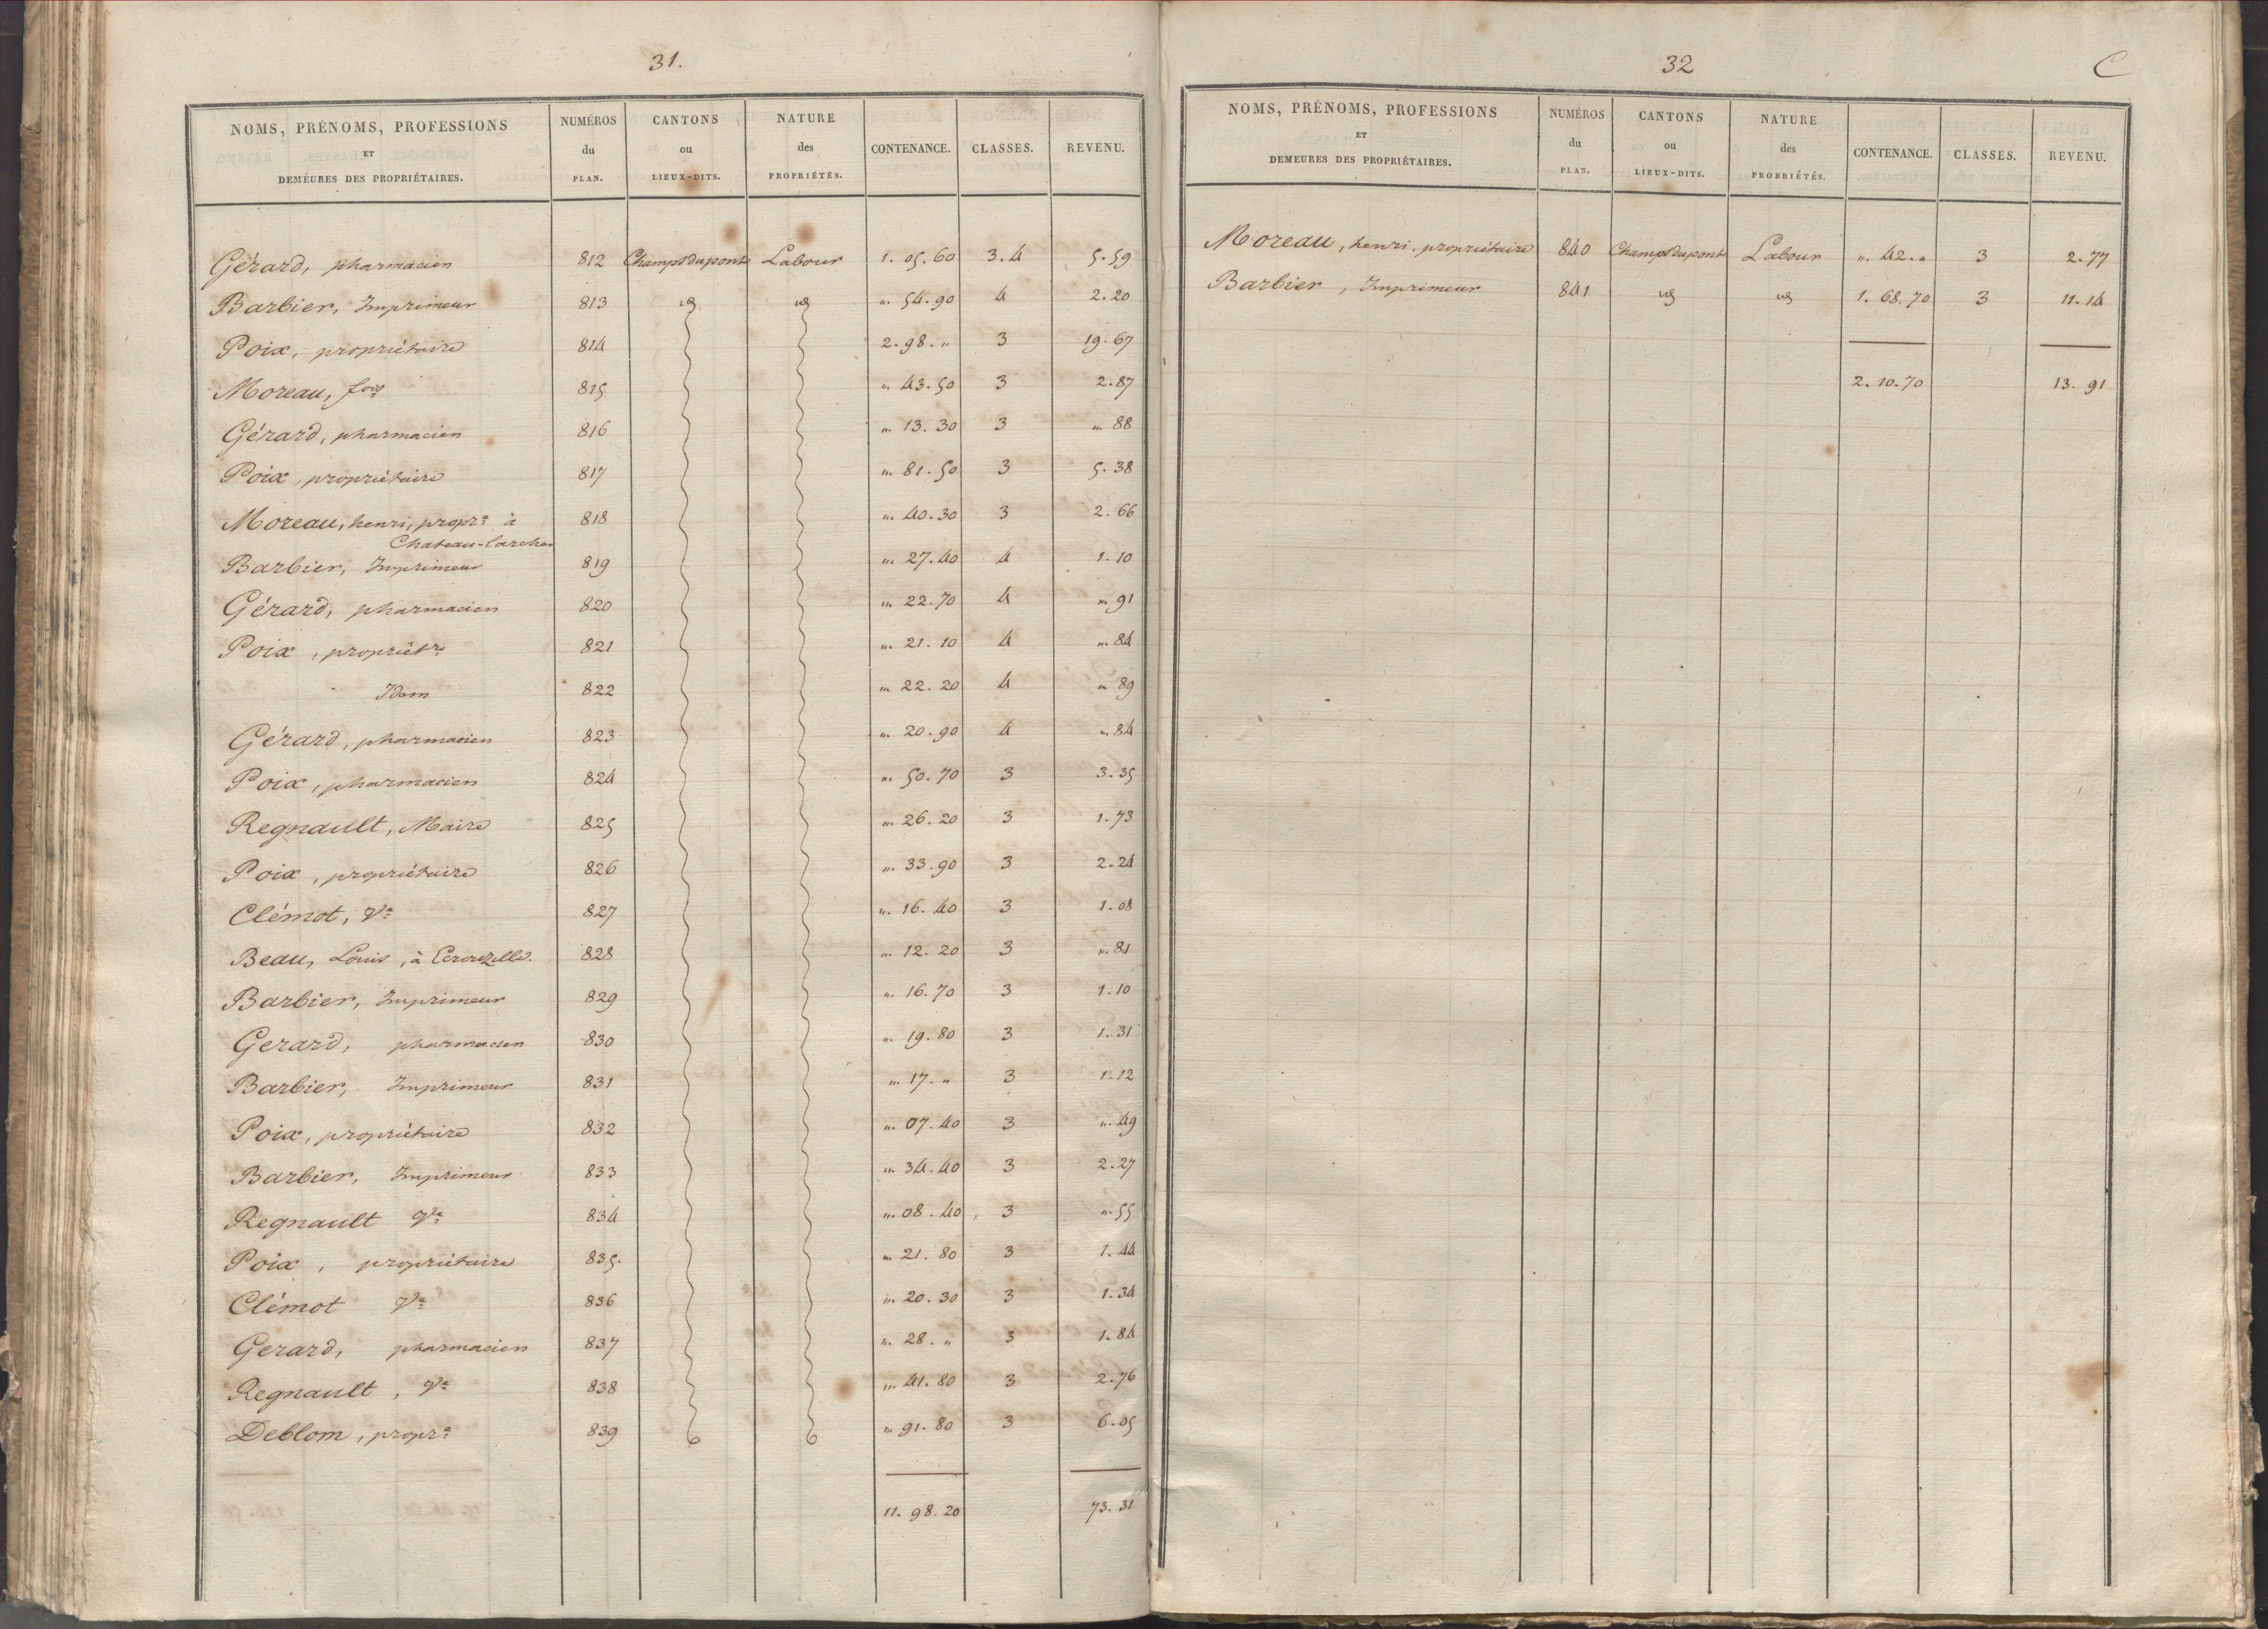 31.
NOMS, PRÉNOMS, PROFESSIONS ET DEMEURES DES PROPRIÉTAIRES. NUMÉROS du PLAN. CANTONS ou LIEUX-DITS. NATURE des PROPRIÉTÉS. CONTENANCE. CLASSES. REVENU.
Gérard, pharmacien 812 Champs dupont Labour 1. 05. 60 3. 4 5. 59
Barbier, Imprimeur 813 id id ". 54. 90 4 2. 20
Poix, propriétaire 814 2. 98. " 3 19. 67
Moreau, fois 815 ". 43. 50 3 2. 87
Gérard, pharmacien 816 ". 13. 30 3 ". 88
Poix, propriétaire 817 ". 81. 50 3 5. 38
Moreau, henri, propre à 818 ". 40. 30 3 2. 66
Chateau-larcher
Barbier, Imprimeur 819 ". 27. 40 4 1. 10
Gérard, pharmacien 820 ". 22. 70 4 ". 91
Poix, propriétre 821 ". 21. 10 4 ". 84
Idem 822 ". 22. 20 4 ". 89
Gérard, pharmacien 823 ". 20. 90 4 ". 84
Poix, pharmacien 824 ". 50. 70 3 3. 35
Regnault, Maire 825 ". 26. 20 3 1. 73
Poix, propriétaire 826 ". 33. 90 3 2. 24
Clémot, Ve 827 ". 16. 40 3 1. 08
Beau, Louis, à 828 ". 12. 20 3 ". 81
Barbier, Imprimeur 829 ". 16. 70 3 1. 10
Gerard, pharmacien 830 ". 19. 80 3 1. 31
Barbier, Imprimeur 831 ". 17. " 3 1. 12
Poix, propriétaire 832 ". 07. 40 3 ". 49
Barbier, Imprimeur 833 ". 34. 40 3 2. 27
Regnault Ve 834 ". 08. 40 3 ". 55
Poix, propriétaire 835. ". 21. 80 3 1. 44
Clémot Ve 836 ". 20. 30 3 1. 34
Gerard, pharmacien 837 ". 28. " 3 1. 84
Regnault, Ve 838 ". 41. 80 3 2. 76
Deblom, propre 839 ". 91. 80 3 6. 05
11. 98. 20 73. 31
32
C
NOMS, PRÉNOMS, PROFESSIONS ET DEMEURES DES PROPRIÉTAIRES. NUMÉROS du PLAN. CANTONS ou LIEUX-DITS. NATURE des PROBRIÉTÉS. CONTENANCE. CLASSES. REVENU.
Moreau, henri, propriétaire 840 Champs dupont Labour ". 42. " 3 2. 77
Barbier, Imprimeur 841 id id 1. 68. 70 3 11. 14
2. 10. 70 13. 91